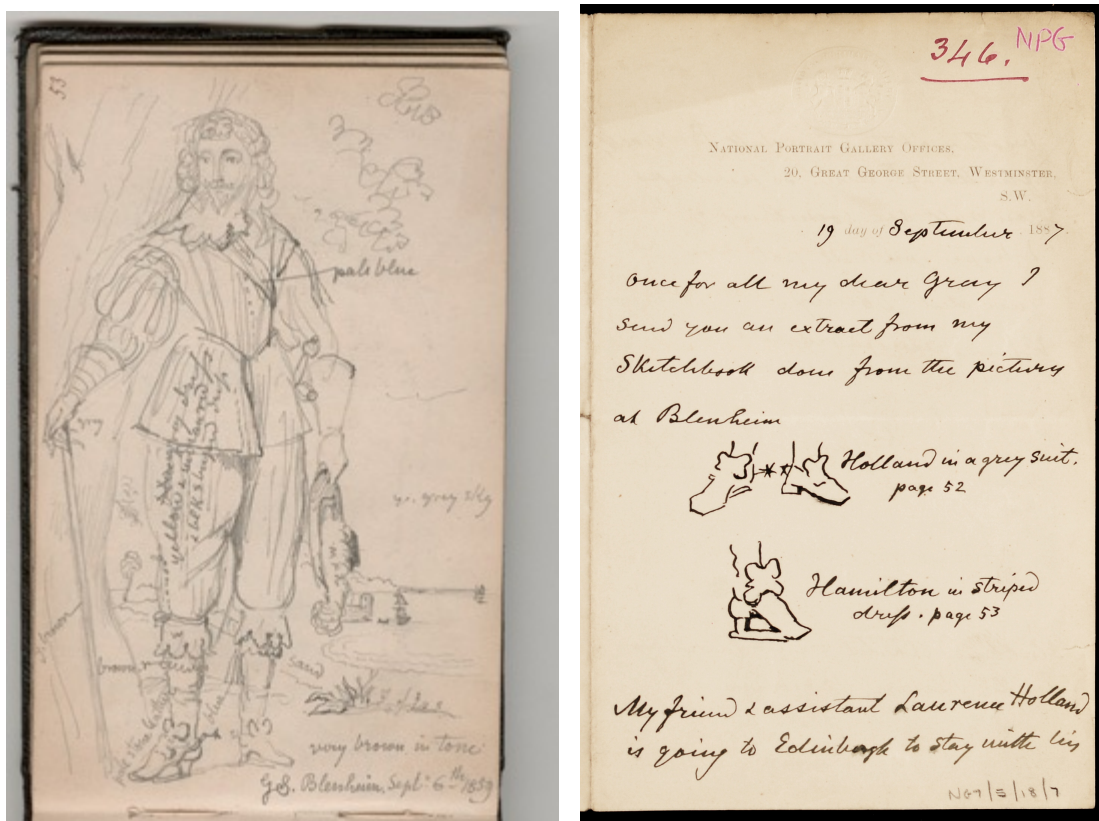 53
pale blue
yellow & 
striped dress
ye. gray sky
brown
sand
blue
very brown in tone
GS. Blenheim, Sept: 6th 1859
346. NPG
National Portrait Gallery Offices,
20, Great George Street, Westminster,
S.W.
19 day of September 1887.
once for all my dear Gray I
send you an extract from my
Sketchbook done from the pictures
at Blenheim
Holland in a grey suit.
page 52
Hamilton in striped
dress. page 53
My friend & assistant Laurence Holland
is going to Edinburgh to stay with his
NG7/3/18/7